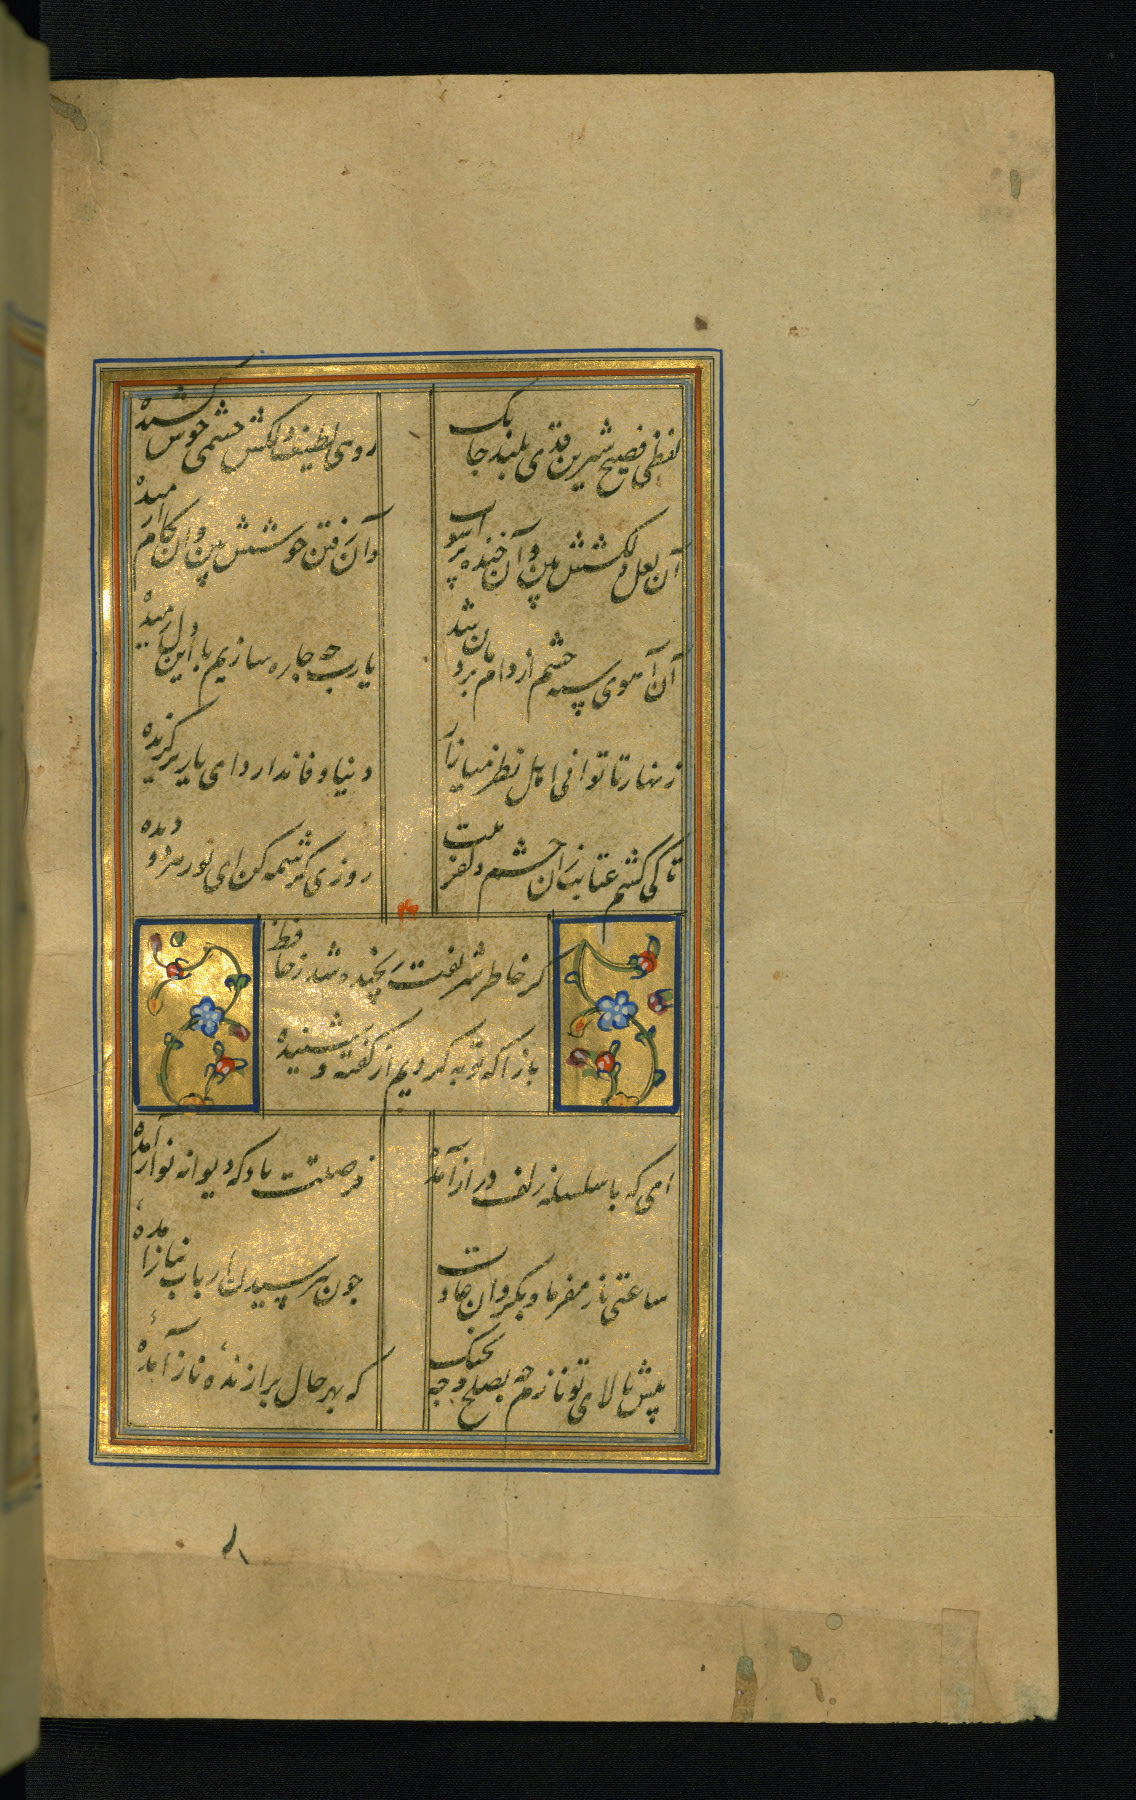 لفظی فصیح شیرین قدی بلند جابک
روی لطیف دلکش چشمی خوش کشیده
آن لعل دلکشش بین و آن خنده پر آشوب
و آن رفتن خوشش بین و ان کام ارمیده
آن آهوی سیه چشم از دام ما برون شد
یارب چه جاره سازیم با این دل رمیده
زنهار تا توانی اهل نظر میازار
دنیا وفا ندارد ای یار برگزیده
تا کی کشم عتابت زان چشم دلفریبت
روزی کرشمه کن ای نور هر دو دیده
کر خاطر شریفت رنجیده شد ز حافظ
باز ا که توبه کردیم از کفته و شنیده
ای که با سلسله زلف دراز آمده
فرصتت باد که دیوانه نواز آمده
ساعتی ناز مفرما و بکردان عادت
جون بپرسیدن ارباب نیاز آمده
پیش بالای تو نازم چه بصلح و چه بجنک
که بهر حال برازنده ناز آمده